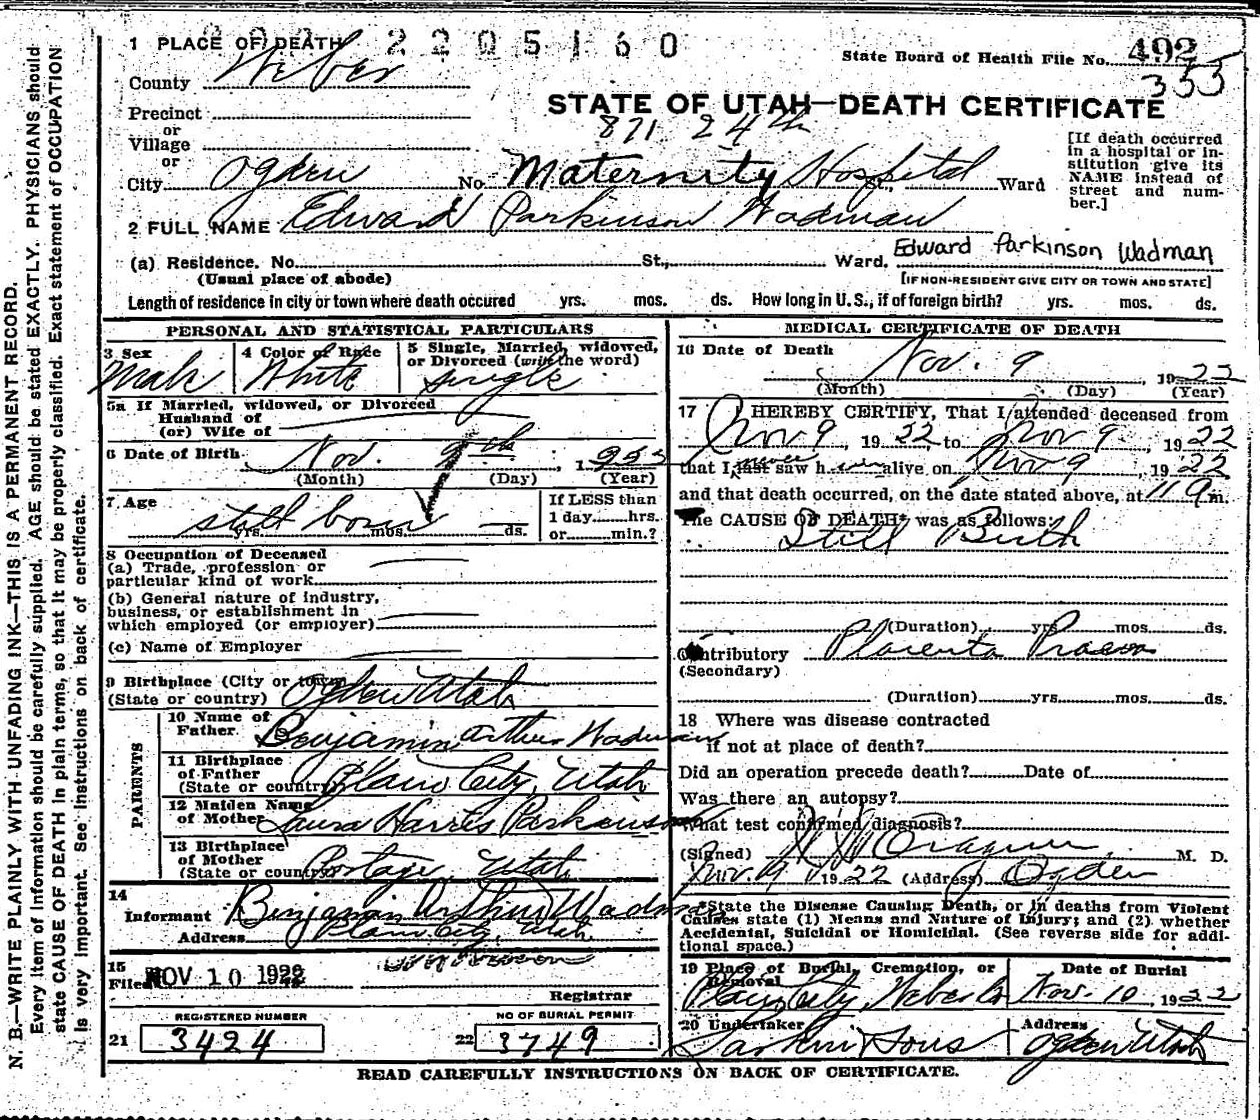 N. B.—WRITE PLAINLY WITH UNFADING INK—THIS IS A PERMANENT RECORD.
Every item of information should be carefully supplied. AGE should be stated EXACTLY. PHYSICIANS should
state CAUSE OF DEATH in plain terms, so that it may be properly classified. Exact statement of OCCUPATION
is very important. See instructions on back of certificate.
1 PLACE OF DEATH 2205160
State Board of Health File No. 492
355
County Weber
STATE OF UTAH—DEATH CERTIFICATE
Precinct
or
Village
or
871 24th
City Ogden No Maternity Hospital St., Ward
[If death occurred
in a hospital or in-
stitution give its
NAME instead of
street and num-
ber.]
2 FULL NAME Edward Parkinson Wadman
Edward Parkinson Wadman
(a) Residence. No. St., Ward.
(Usual place of abode) [IF NON-RESIDENT GIVE CITY OR TOWN AND STATE]
Length of residence in city or town where death occured yrs. mos. ds. How long in U.S., if of foreign birth? yrs. mos. ds.
PERSONAL AND STATISTICAL PARTICULARS
3 Sex Male
4 Color or Race White
5 Single, Married, widowed,
or Divorced (write the word)
single
5a If Married, widowed, or Divorced
Husband of
(or) Wife of
6 Date of Birth Nov. 9th, 1922
(Month) (Day) (Year)
7 Age still born
yrs. mos. ds.
If LESS than
1 day hrs.
or min.?
8 Occupation of Deceased
(a) Trade, profession or
particular kind of work
(b) General nature of industry,
business, or establishment in
which employed (or employer)
(c) Name of Employer
9 Birthplace (City or town)
(State or country) Ogden Utah
PARENTS
10 Name of
Father Benjamin Arthur Wadman
11 Birthplace
of Father
(State or country) Plain City, Utah
12 Maiden Name
of Mother Laura Harris Parkinson
13 Birthplace
of Mother
(State or country) Portage, Utah
14
Informant Benjamin Arthur Wadman
Address Plain City, Utah
15
Filed NOV 10 1922
Registrar
REGISTERED NUMBER
21 3424
NO OF BURIAL PERMIT
22 3749
MEDICAL CERTIFICATE OF DEATH
16 Date of Death Nov. 9, 1922
(Month) (Day) (Year)
17 I HEREBY CERTIFY, That I attended deceased from
Nov 9, 1922 to Nov 9, 1922
that I last never saw h alive on Nov 9, 1922
and that death occurred, on the date stated above, at 11 9 m.
The CAUSE OF DEATH* was as follows:
Still Birth
(Duration) yrs mos. ds.
Contributory Placenta Praevia
(Secondary)
(Duration) yrs. mos. ds.
18 Where was disease contracted
if not at place of death?
Did an operation precede death? Date of
Was there an autopsy?
What test confirmed diagnosis?
(Signed) M. D.
Nov. 9 1922 (Address) Ogden
*State the Disease Causing Death, or in deaths from Violent
Causes state (1) Means and Nature of Injury; and (2) whether
Accidental, Suicidal or Homicidal. (See reverse side for addi-
tional space.)
19 Place of Burial, Cremation, or
Removal
Plain City, Weber Co
Date of Burial
Nov. 10, 1922
20 Undertaker
Larkin Sons
Address
Ogden Utah
READ CAREFULLY INSTRUCTIONS ON BACK OF CERTIFICATE.